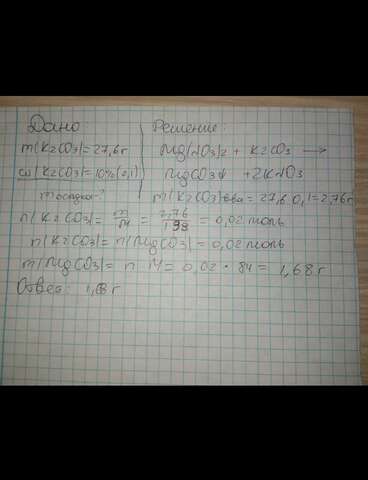 Дано:
m(K2CO3)=27,6г
ω(K2CO3)=10%(0,1)
m осадка-?
Решение:
Mg(NO3)2 + K2CO3 →
MgCO3↓ +2KNO3
m(K2CO3)в-ва = 27,6·0,1=2,76г
n(K2CO3)= m/M = 2,76/138 = 0,02 моль
n(K2CO3)= n(MgCO3)= 0,02 моль
m(MgCO3)= n·M= 0,02 · 84 = 1,68 г
Ответ: 1,68 г